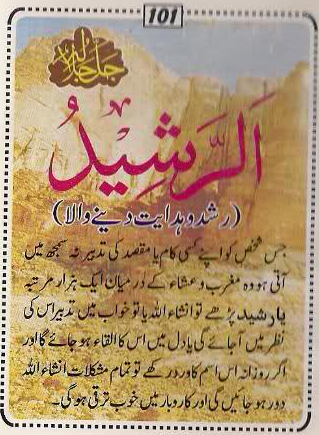 101
جل جلالہ
اَلرَّشِیدُ
(رشد و ہدایت دینے والا)
جس شخص کو اپنے کسی کام یا مقصد کی تدبیر نہ سمجھ میں
آتی ہو وہ مغرب و عشاء کے درمیان ایک ہزار مرتبہ
یا رشید پڑھے تو انشاء اللہ یا تو خواب میں تدبیر اس کی
نظر میں آ جائے گی یا دل میں اس کا القاء ہو جائے گا اور
اگر روزانہ اس اسم کا ورد رکھے تو تمام مشکلات انشاء اللہ
دور ہو جائیں گی اور کاروبار میں خوب ترقی ہوگی۔